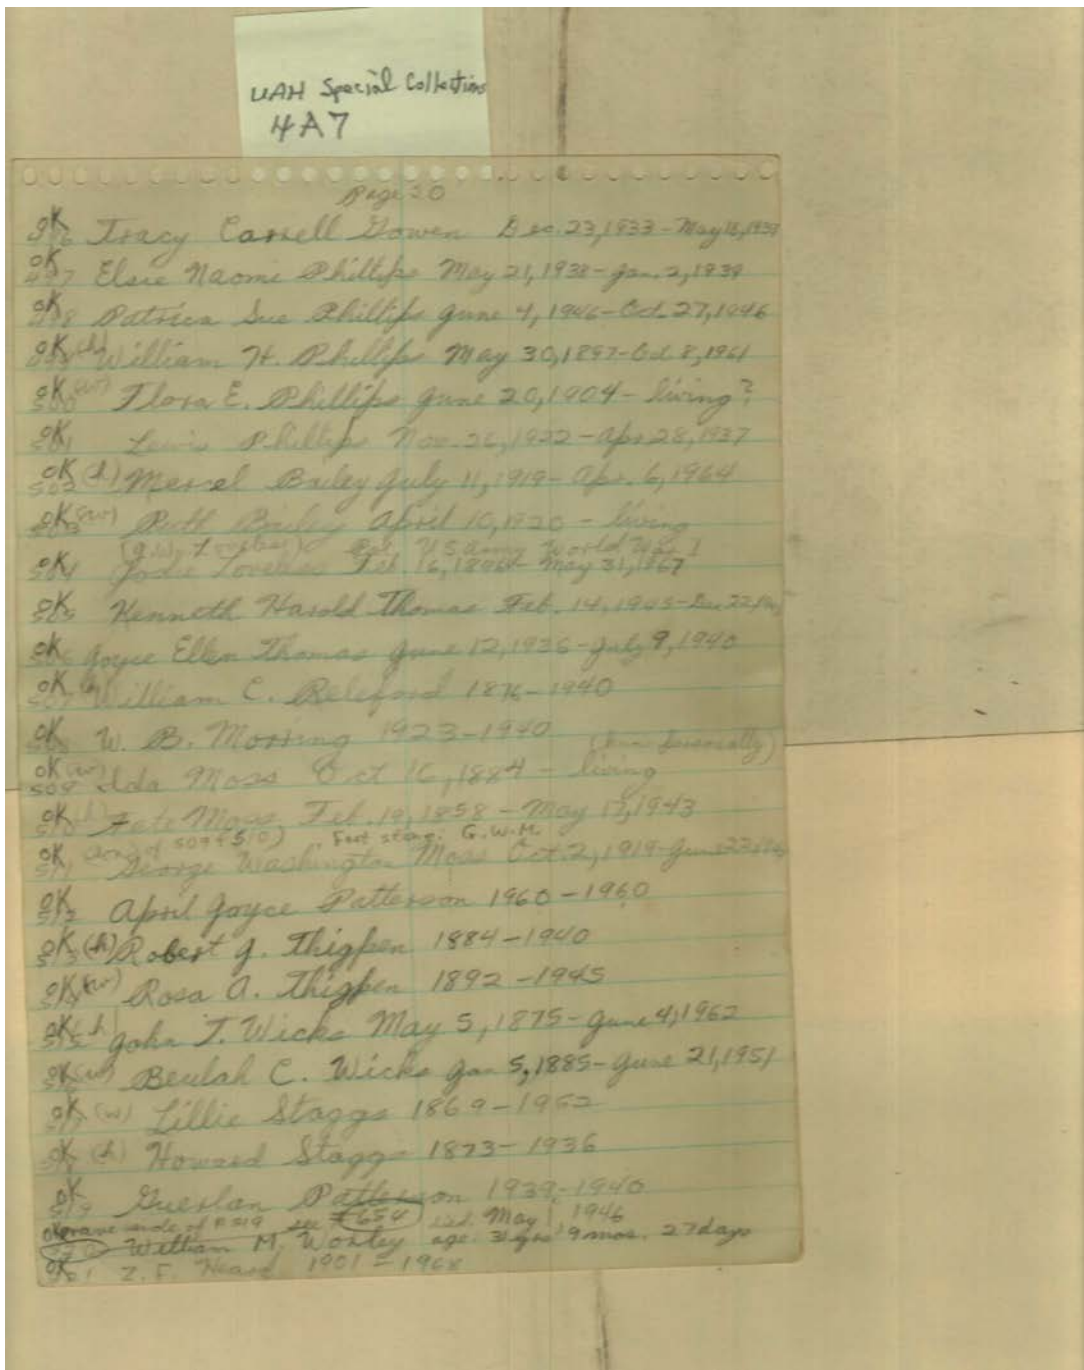 UAH Special Collections
4A7
Page 20
OK 496 Tracy Carrell Gowen Dec. 23, 1933 - May 18, 1939
OK 497 Elsie Naomi Phillips May 21, 1938 - Jan. 2, 1939
OK 498 Patricia Sue Phillips June 4, 1946 - Oct. 27, 1946
OK 499 (h) William H. Phillips May 30, 1897 - Oct 8, 1961
OK 500 (w) Flora E. Phillips June 20, 1904 - living?
OK 501 Lewis Phillips Nov. 26, 1922 - Apr 28, 1937
OK 502 (h) Mercel Bailey July 11, 1919 - Apr. 6, 1964
OK 503 (w) Ruth Bailey April 10, 1920 - living
(J.W. Loveless) Pvt. US Army World War I
OK 504 Jodie Loveless Feb 16, - May 31, 1967
OK 505 Kenneth Harold Thomas Feb. 14, 1905 - Dec 22,
OK 506 Joyce Ellen Thomas June 12, 1936 - July 9, 1940
OK 507 (h) William C. Releford 1876 - 1940
OK 508 W. B. Morring 1923 - 1940
(personally)
OK 509 (w) Ida Moss Oct 16, 1884 - living
OK 510 (h) Fate Moss Feb. 19, 1858 - May 17, 1943
(son of 509 & 510) Foot stone: G.W.M.
OK 511 George Washington Moss Oct. 2, 1919 - June 23,
OK 512 April Joyce Patterson 1960 - 1960
OK 513 (h) Robert J. Thigpen 1884 - 1940
OK 514 (w) Rosa A. Thigpen 1892 - 1945
OK 515 (h) John T. Wicks May 5, 1875 - June 4, 1962
OK 516 (w) Beulah C. Wicks Jan 5, 1885 - June 21, 1951
OK 517 (w) Lillie Staggs 1869 - 1952
OK 518 (h) Howard Staggs 1873 - 1936
OK 519 Guerlan Patterson 1939 - 1940
Grave side of #519 see #654 died May 1, 1946
520 William M. Worley age 31 yrs 9 mos. 27 days
OK 521 Z. F. Heard 1901 - 1968